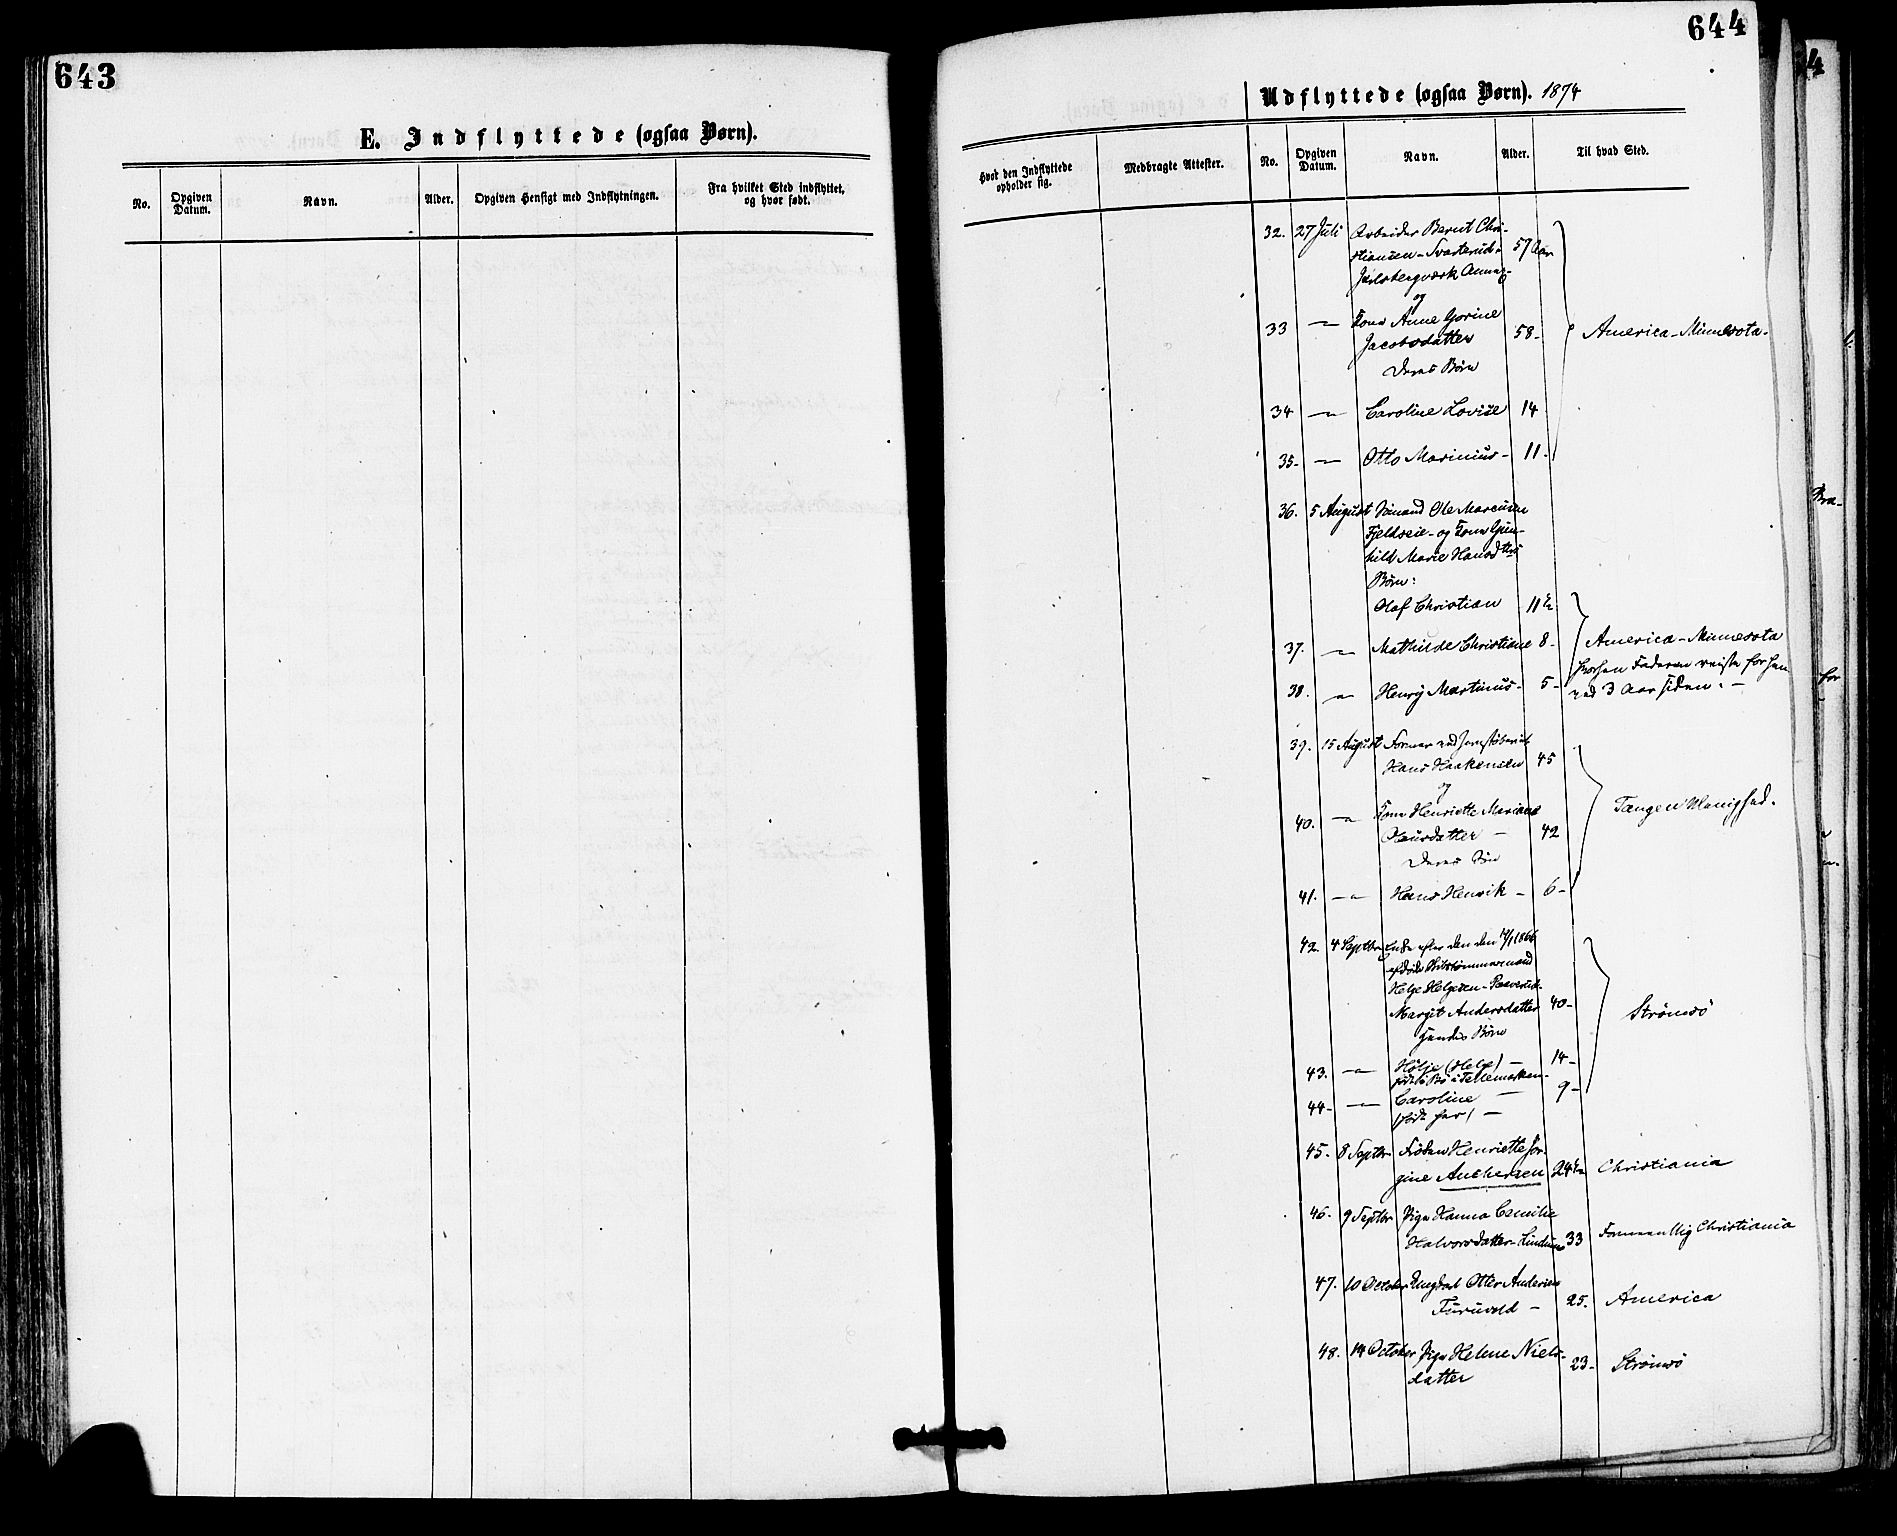 643
E. Indflyttede (ogsaa Børn).
No.
Opgiven Datum.
Navn.
Alder.
Opgiven Hensigt med Indflytningen.
Fra hvilket Sted indflyttet, og hvor født.
644
Udflyttede (ogsaa Børn). 1874
Hvor den Indflyttede opholder sig.
Medbragte Attester.
No.
Opgiven Datum.
Navn.
Alder.
Til hvad Sted.
32. 27 Juli Arbeider Bernt Chri-
stiansen - Svarterud - 57 Aar
Jarlsbergværk
og
33 — Kone Anne Gorine
Jacobsdatter 58 - America - Minnesota -
Deres Børn
34 — Caroline Lovise 14
35 - — Otto Marinius - 11 -
36. 5 August Ole Marcusen
Fjeldseie - og Kone Gun-
hild Marie Hansdtrs
Børn:
Olaf Christian 11 ½
37. — Mathilde Christiane 8 - America - Minnesota
hvorhen Faderen reiste for hen
38. — Henry Martinus - 5 - ved 3 Aar siden. -
39. 15 August Former ved
Hans Haakensen 45
og
40. — Kone Henriette Mariane
Hansdatter - 42 Tangen Menighed.
Deres Søn
41. — Hans Henrik - 6 -
42. 4 Septbr Enke efter den den 1866
afdøde
Helge Helgesen -
Margit Andersdatter 40 - Strømsø
hendes Børn
43. — Hølje (Helge) - 14 -
født i Bø i Tellemarken -
44 - — Caroline — 9 -
(født her) -
45. 8 Septbr Frøken Henriette Jør-
gine Anthersen 24 ½ Christiania
46. 9 Septbr Pige Hanna Camilie
Halvorsdatter - 33 Formeentlig Christiania
47. 10 October Ungkarl Otter Andersen
Furuvold - 25. America
48. 14 October Pige Helene Niels-
datter 23 - Strømsø